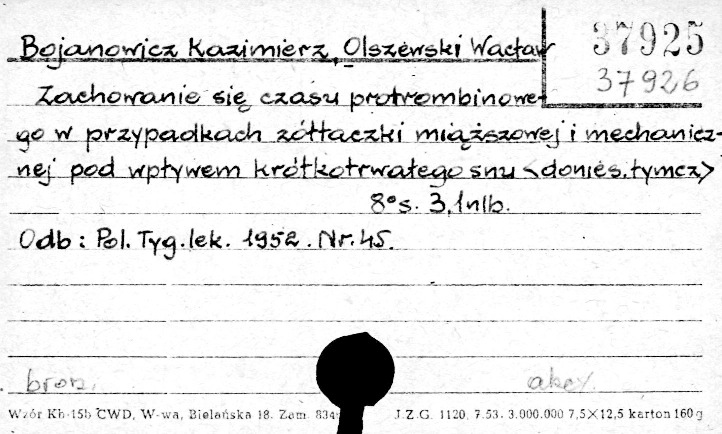 Bojanowicz Kazimierz, Olszewski Wacław
37925
37926
Zachowanie się czasu protrombinowe-
go w przypadkach żółtaczki miąższowej i mechanicz-
nej pod wpływem krótkotrwałego snu <donies. tymcz.>
8°s. 3,1nlb.
Odb: Pol. Tyg. lek. 1952. Nr. 45.
bron.
akc.
Wzór Kb-15b CWD, W-wa, Bielańska 18. Zam. 834
J.Z.G. 1120. 7.53. 3.000.000 7,5×12,5 karton 160 g